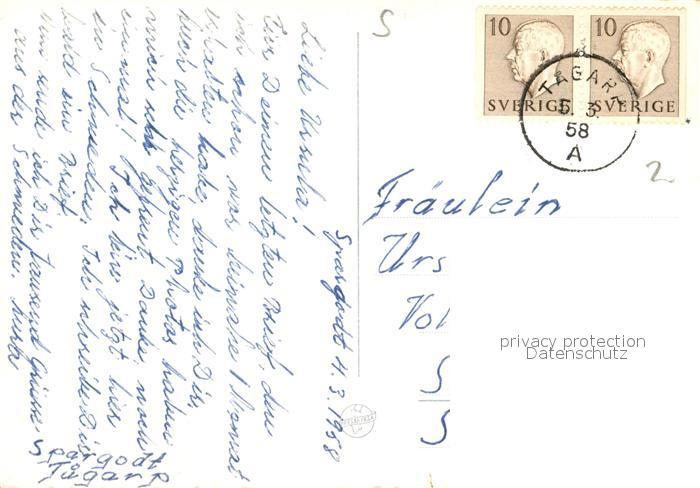 Spargodt 4.3.1958
Liebe Ursula!
Für Deinen letzten Brief, den
ich schon vor beinahe 1 Monat
erhalten habe, danke ich Dir.
Auch die herzigen Photos haben
mich sehr gefreut. Danke, noch
einmal! Ich bin jetzt hier
in Schweden. Ich schreibe Dir
bald ein Brief.
nun sende ich Dir tausend Grüsse
aus der Schweden.
Spargodt
Tågarp
S
10
10
SVERIGE
SVERIGE
TÅGARP
5.3.
58
A
2
Fräulein
Urs
Vol
S
S
privacy protection
Datenschutz